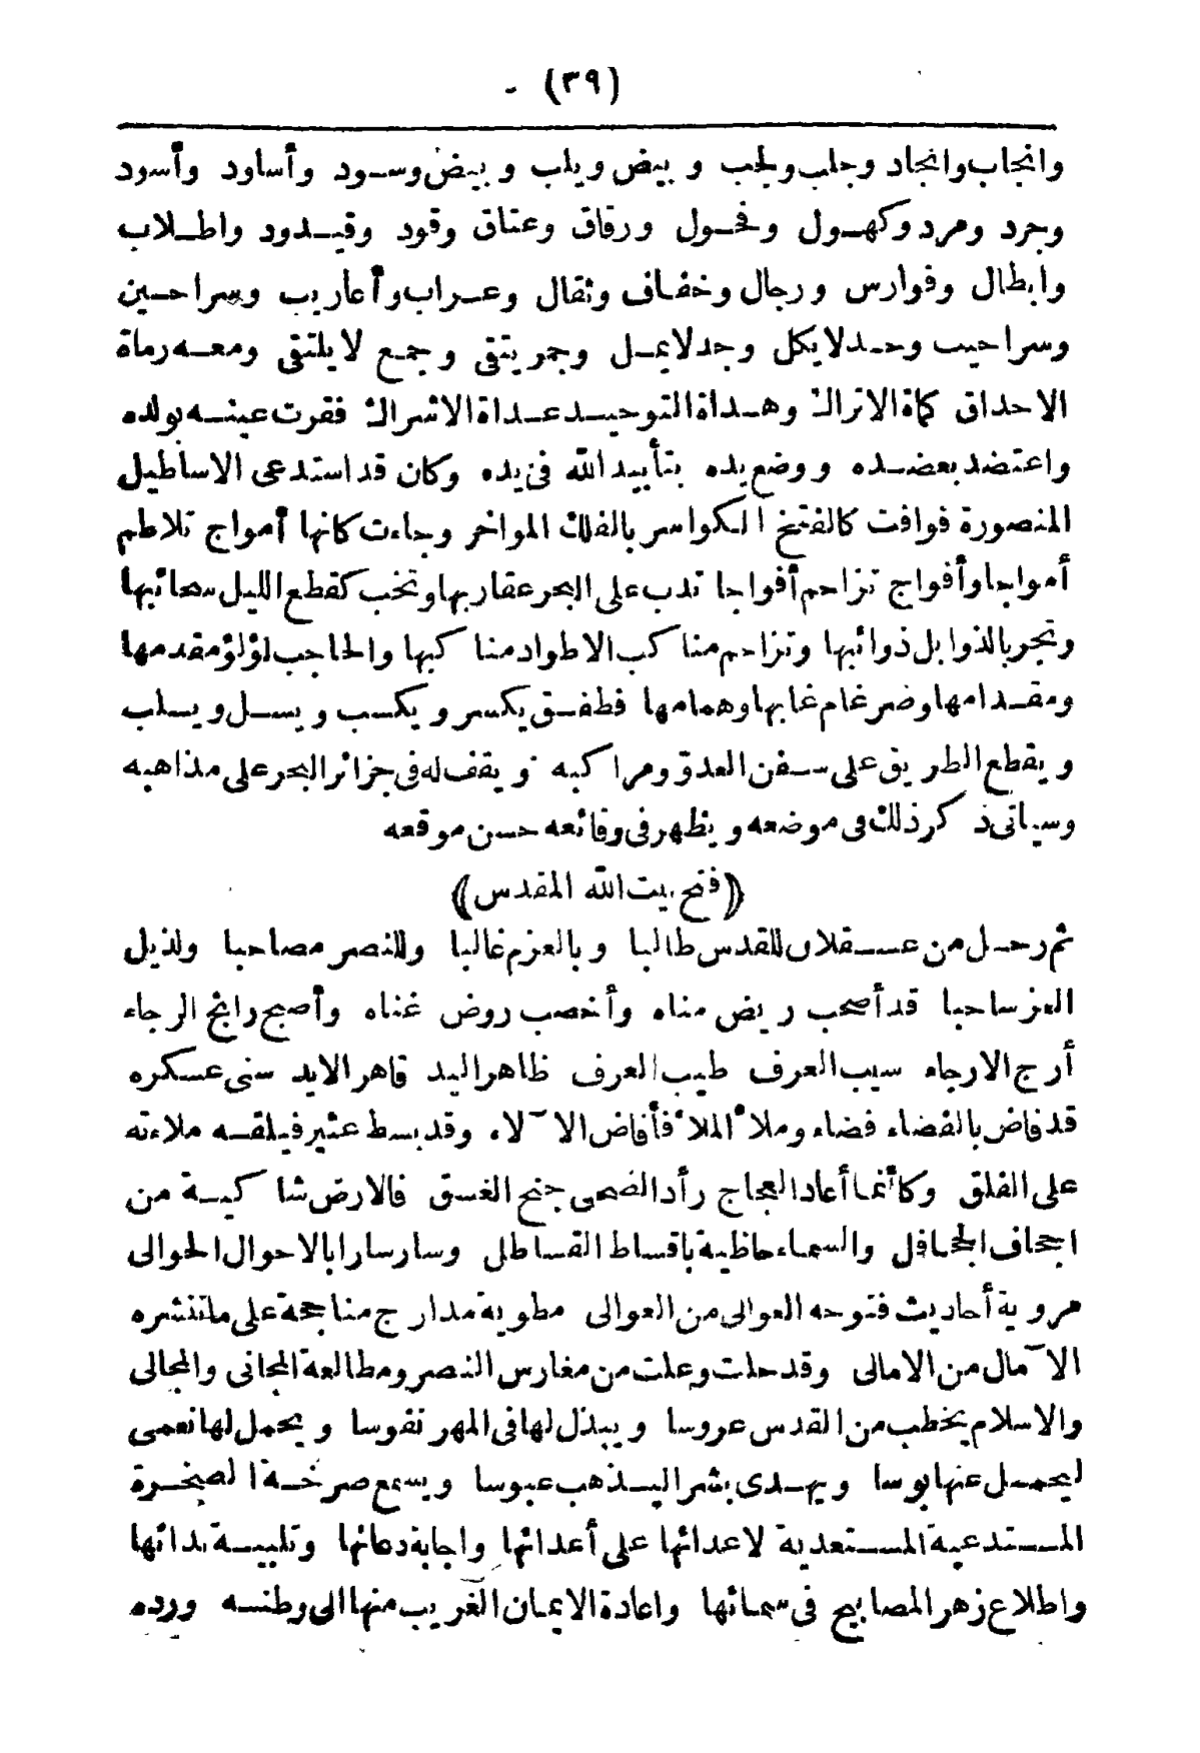 (٣٩)
وانجاب وانجاد وجلب ولجب وبيض ويلب وبيض وسود وأساود وأسود
وجرد ومرد وكهول وفحول ورقاق وعتاق وقود وقيدود واطلاب
وابطال وفوارس ورجال وخفاف وثقال وعراب وأعاريب وسراحين
وسراحيب وحد لا يكل وجد لا يمل وجمر يتقى وجمع لا يلتقى ومعه رماة
الاحداق كماة الاتراك وهداة التوحيد عداة الاشراك فقرت عينه بولده
واعتضد بعضده ووضع يده بتأييد الله فى يده وكان قد استدعى الاساطيل
المنصورة فوافت كالفتخ الكواسر بالفلك المواخر وجاءت كانها أمواج تلاطم
أمواجا وأفواج تزاحم أفواجا تدب على البحر عقاربها وتخب كقطع الليل سحائبها
وتجر بالذوابل ذوائبها وتزاحم مناكب الاطواد مناكبها والحاجب لؤلؤ مقدمها
ومقدامها وضرغام غابها وهمامها فطفق يكسر ويكسب ويسل ويسلب
ويقطع الطريق على سفن العدوّ ومراكبه ويقف له فى جزائر البحر على مذاهبه
وسيأتى ذكر ذلك فى موضعه ويظهر فى وقائعه حسن موقعه
﴿فتح بيت الله المقدس﴾
ثم رحل من عسقلان للقدس طالبا وبالعزم غالبا وللنصر مصاحبا ولذيل
العز ساحبا قد أصحب ريض مناه وأخصب روض غناه وأصبح رائج الرجاء
أرج الارجاء سيب العرف طيب العرف ظاهر اليد قاهر الايد سنى عسكره
قد فاض بالفضاء فضاء وملأ الملأ فأفاض الآلاء وقد بسط عثير فيلقه ملاءته
على الفلق وكأنما أعاد العجاج رأد الضحى جنح الغسق فالارض شاكية من
اجحاف الجحافل والسماء حاظية باقساط القساطل وسار سارا بالاحوال الحوالى
مروية أحاديث فتوحه العوالى من العوالى مطوية مدارج مناجحة على ما تنشره
الآمال من الامالى وقد حلت وعلت من مغارس النصر ومطالعة المجانى والمجالى
والاسلام يخطب من القدس عروسا ويبذل لها فى المهر نفوسا ويحمل لها نعمى
ليحمل عنها بوسا ويهدى بشرا ليذهب عبوسا ويسمع صرخة الصخرة
المستدعية المستعدية لاعدائها على أعدائها واجابة دعائها وتلبية ندائها
واطلاع زهر المصابيح فى سمائها واعادة الايمان الغريب منها الى وطنه ورده